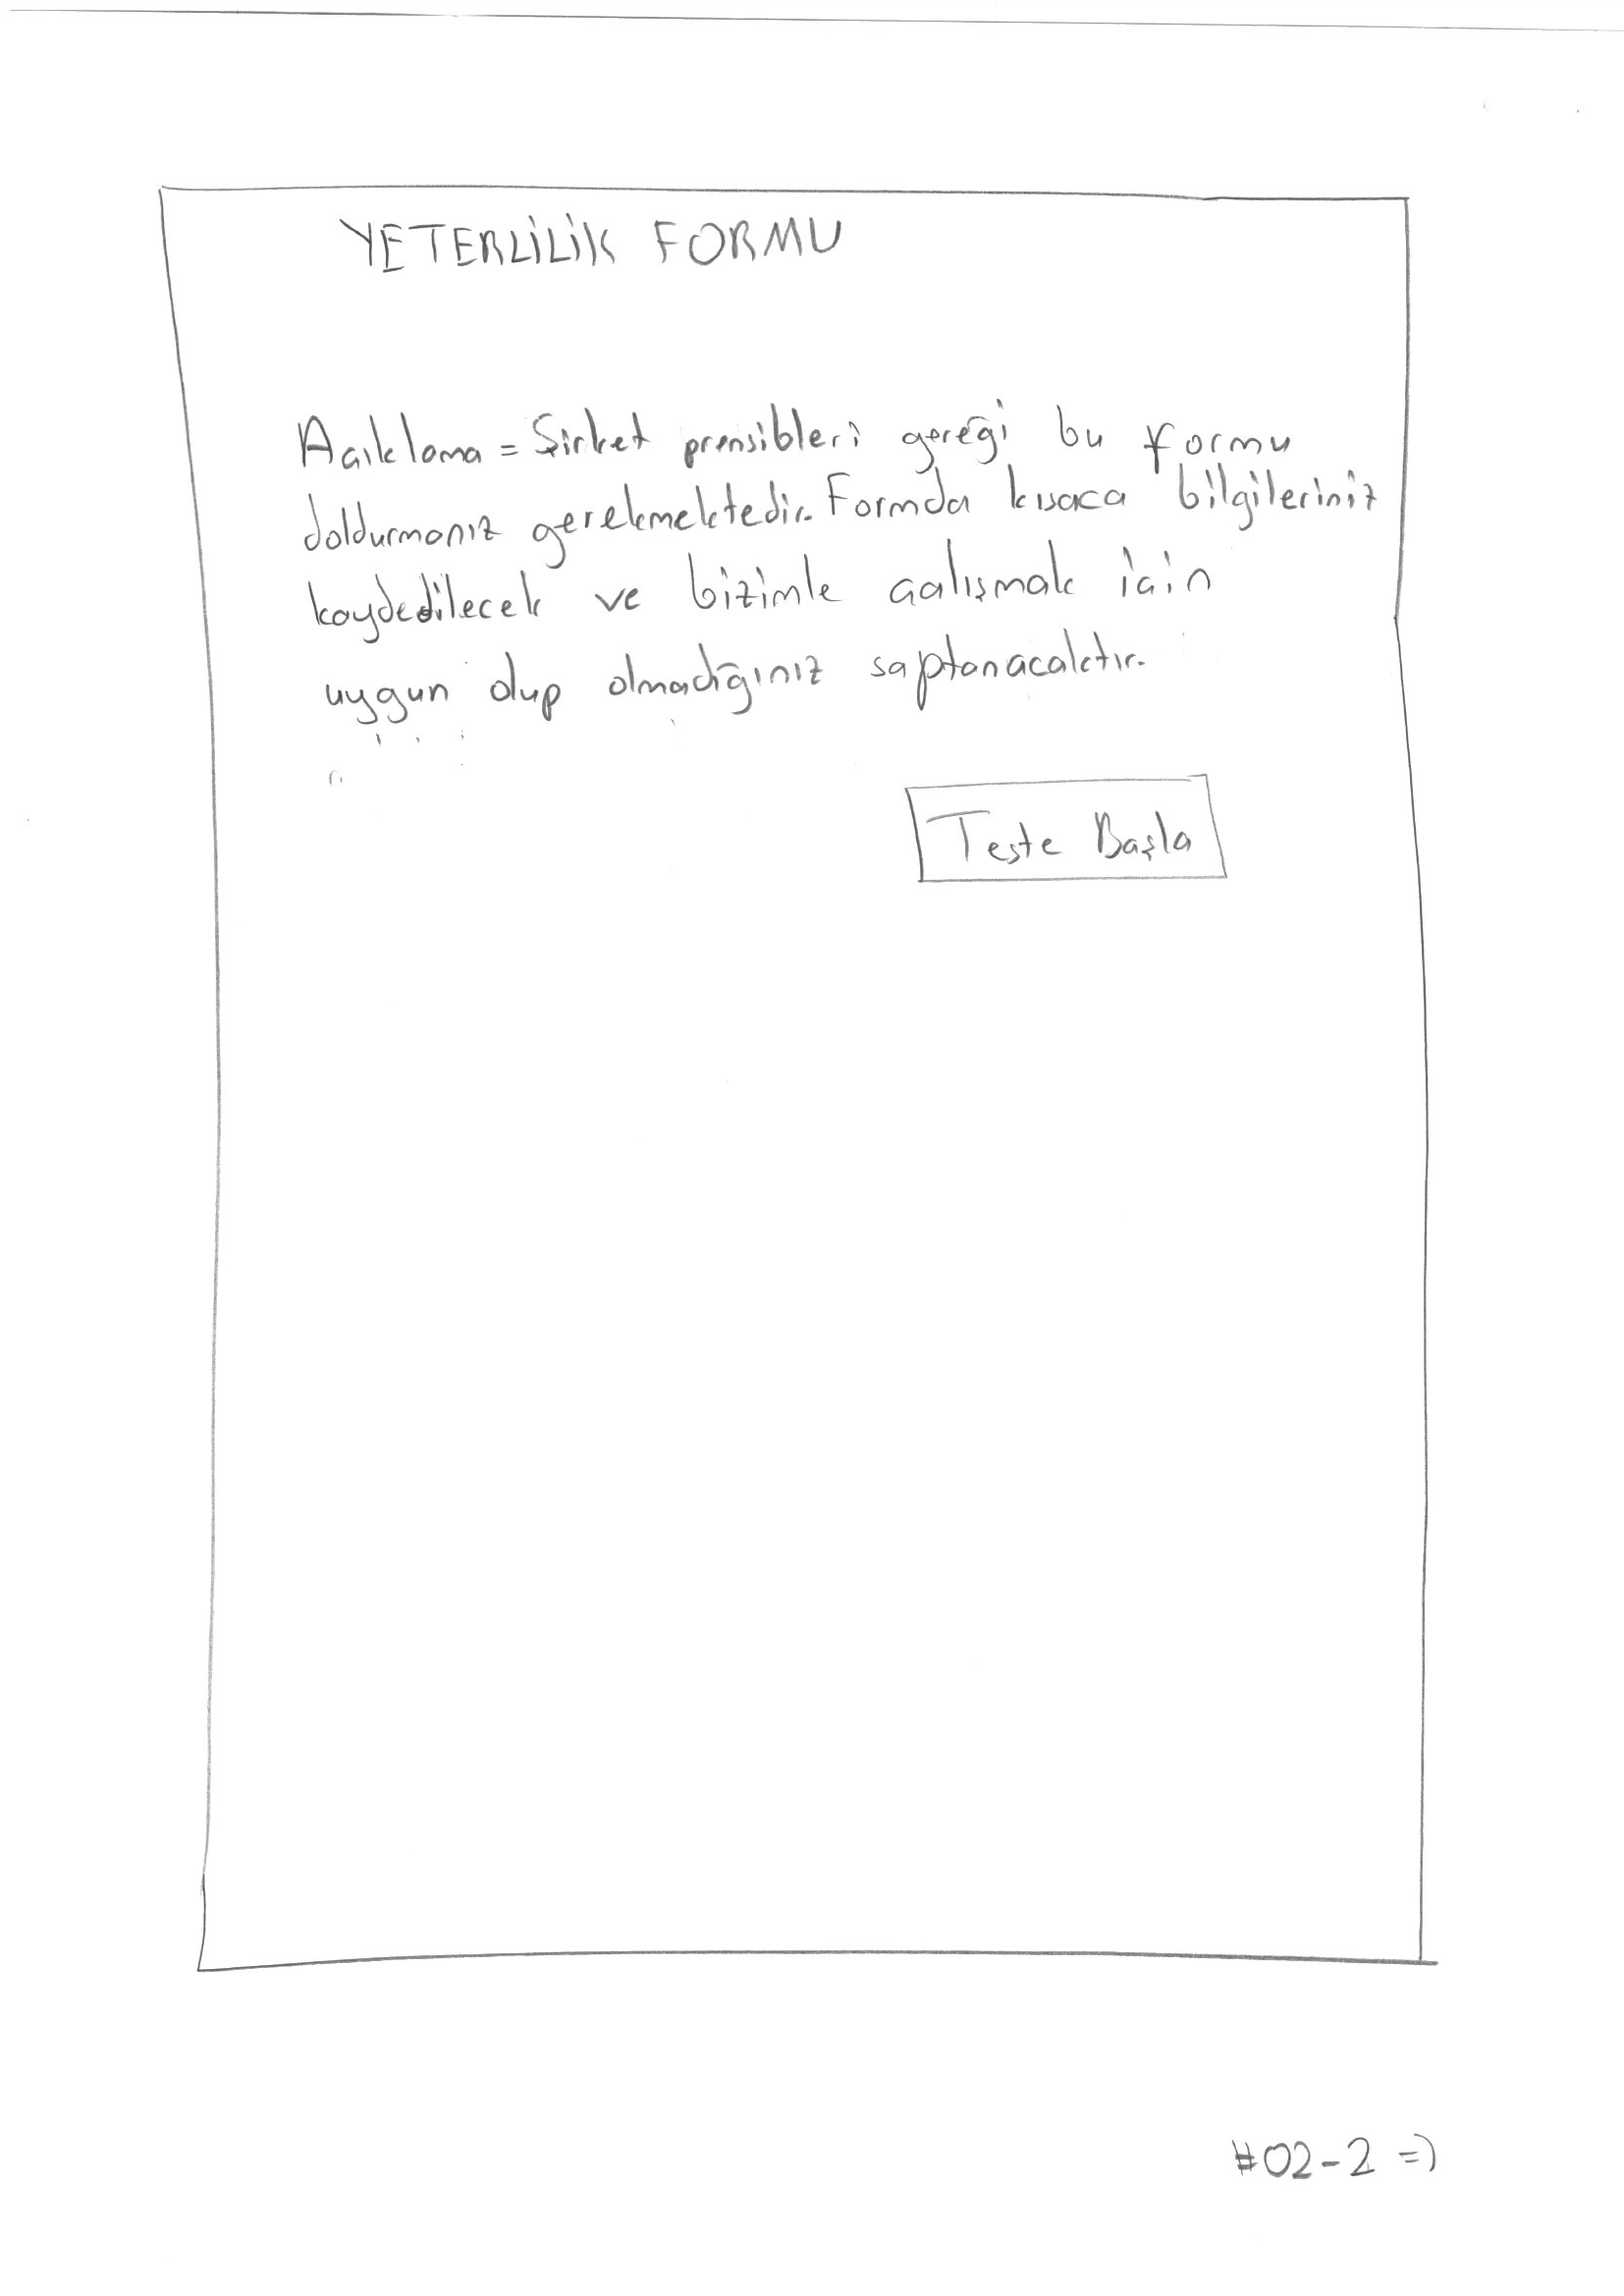 YETERLİLİK FORMU
Açıklama = Şirket prensibleri gereği bu formu
doldurmanız gerekmektedir. Formda kısaca bilgileriniz
kaydedilecek ve bizimle çalışmak için
uygun olup olmadığınız saptanacaktır.
Teste Başla
#02-2 =)